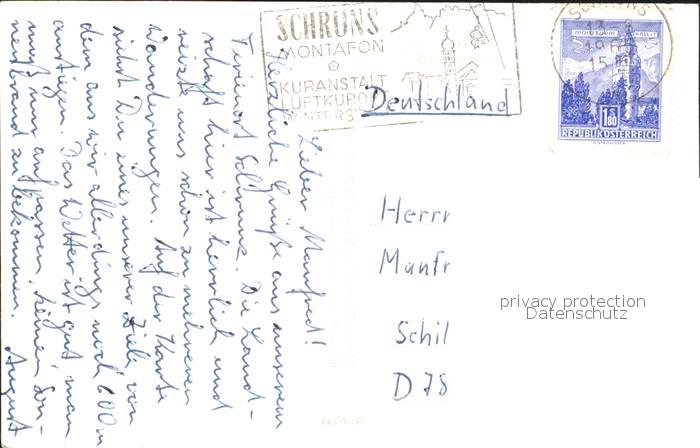 SCHRUNS
MONTAFON
KURANSTALT
LUFTKURO
WINTERS
SCHRUNS
13.-8
196
15
REPUBLIK ÖSTERREICH
S 1.80
Deutschland
Lieber Manfred!
Herzliche Grüße aus unserem
Ferienort Schruns. Die Land-
schaft hier ist herrlich und
reizte uns schon zu mehreren
Wanderungen. Auf der Karte
siehst Du eines unserer Ziele von
dem aus wir allerdings noch 600 m
anstiegen. Das Wetter ist gut, man
muß nur aufpassen, keinen Son-
nenbrand zu bekommen. August
Herrr
Manfr
Schil
D 78
privacy protection
Datenschutz